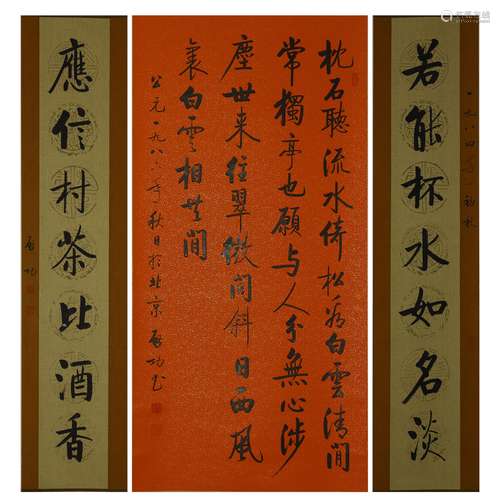 若能杯水如名淡
一九八四年初秋
枕石聽流水倚松看白雲清閒
常獨享也願與人分無心涉
塵世來往翠微間斜日西風
裏白雲相共閒
公元一九八年秋日於北京啓功書
應信村茶比酒香
啓功